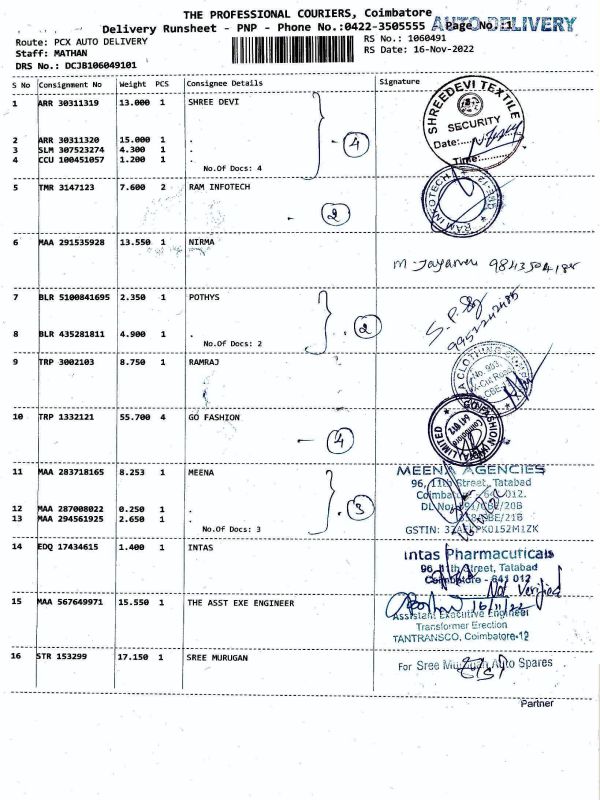 THE PROFESSIONAL COURIERS, Coimbatore
AUTO DELIVERY
Delivery Runsheet - PNP - Phone No.:0422-3505555 Page No.:1
Route: PCX AUTO DELIVERY
RS No.: 1060491
Staff: MATHAN
RS Date: 16-Nov-2022
DRS No.: DCJB106049101
S No Consignment No Weight PCS Consignee Details Signature
1 ARR 30311319 13.000 1 SHREE DEVI
2 ARR 30311320 15.000 1 .
3 SLM 307523274 4.300 1 .
4 CCU 100451057 1.200 1 .
No.Of Docs: 4
4
SHREEDEVI TEXTILE
SECURITY
Date:
Time:
5 TMR 3147123 7.600 2 RAM INFOTECH
2
RAM INFOTECH
6 MAA 291535928 13.550 1 NIRMA
7 BLR 5100841695 2.350 1 POTHYS
8 BLR 435281811 4.900 1 .
No.Of Docs: 2
2
9 TRP 3002103 8.750 1 RAMRAJ
10 TRP 1332121 55.700 4 GO FASHION
4
GO FASHION
LIMITED
641 012
11 MAA 283718165 8.253 1 MEENA
12 MAA 287008022 0.250 1 .
13 MAA 294561925 2.650 1 .
No.Of Docs: 3
3
MEENA AGENCIES
96, 11th Street, Tatabad
DL No
GSTIN:
14 EDQ 17434615 1.400 1 INTAS
Intas Pharmacuticals
96, 11th Street, Tatabad
Coimbatore - 641 012
Not Verified
15 MAA 567649971 15.550 1 THE ASST EXE ENGINEER
16/11/22
Assistant Executive Engineer
Transformer Erection
TANTRANSCO, Coimbatore-12
16 STR 153299 17.150 1 SREE MURUGAN
For Sree Murugan Auto Spares
Partner